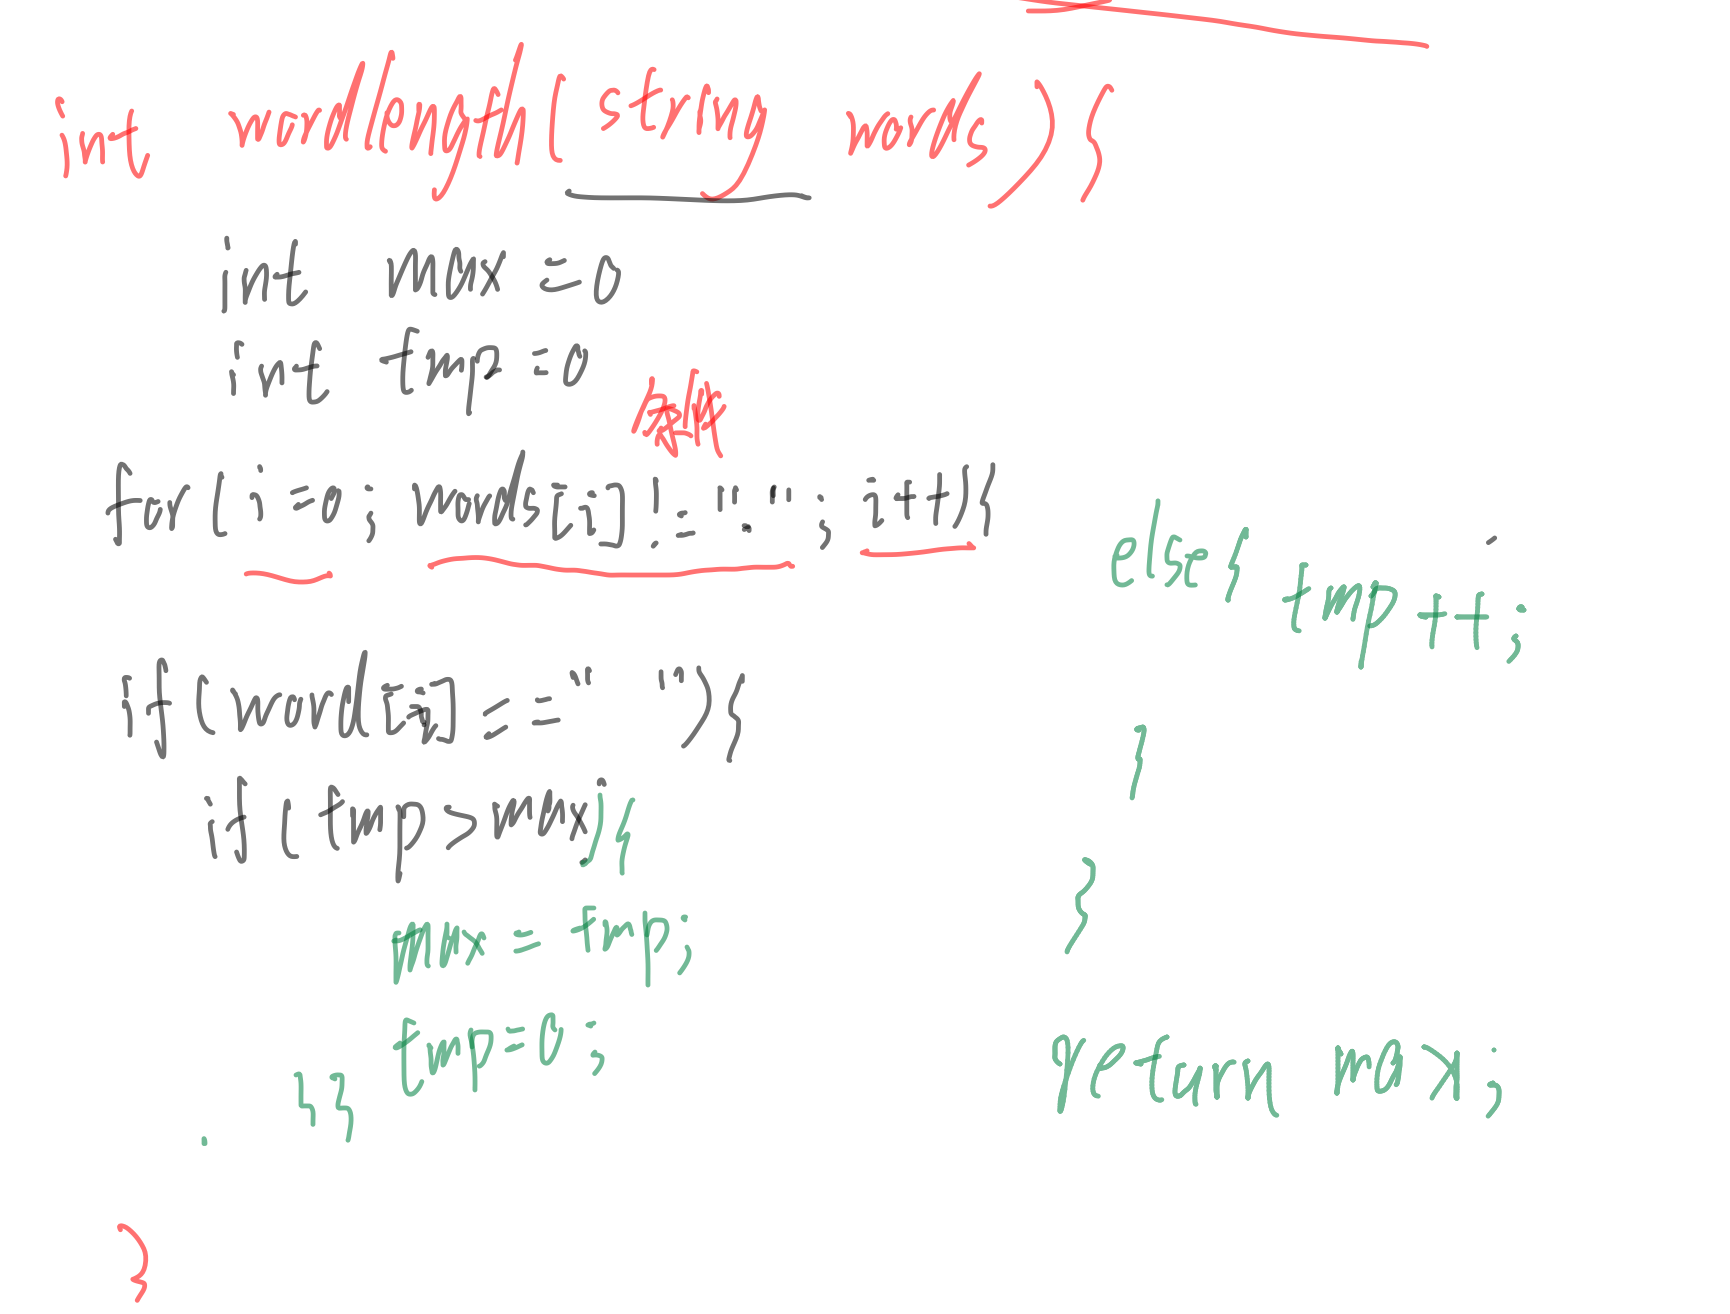 int wordlength(string words){
int max =0
int tmp =0
条件
for(i=0; words[i]!="."; i++){
if(word[i]==" "){
if(tmp>max){
max = tmp;
tmp=0;
}}
else{ tmp++;
}
}
return max;
}